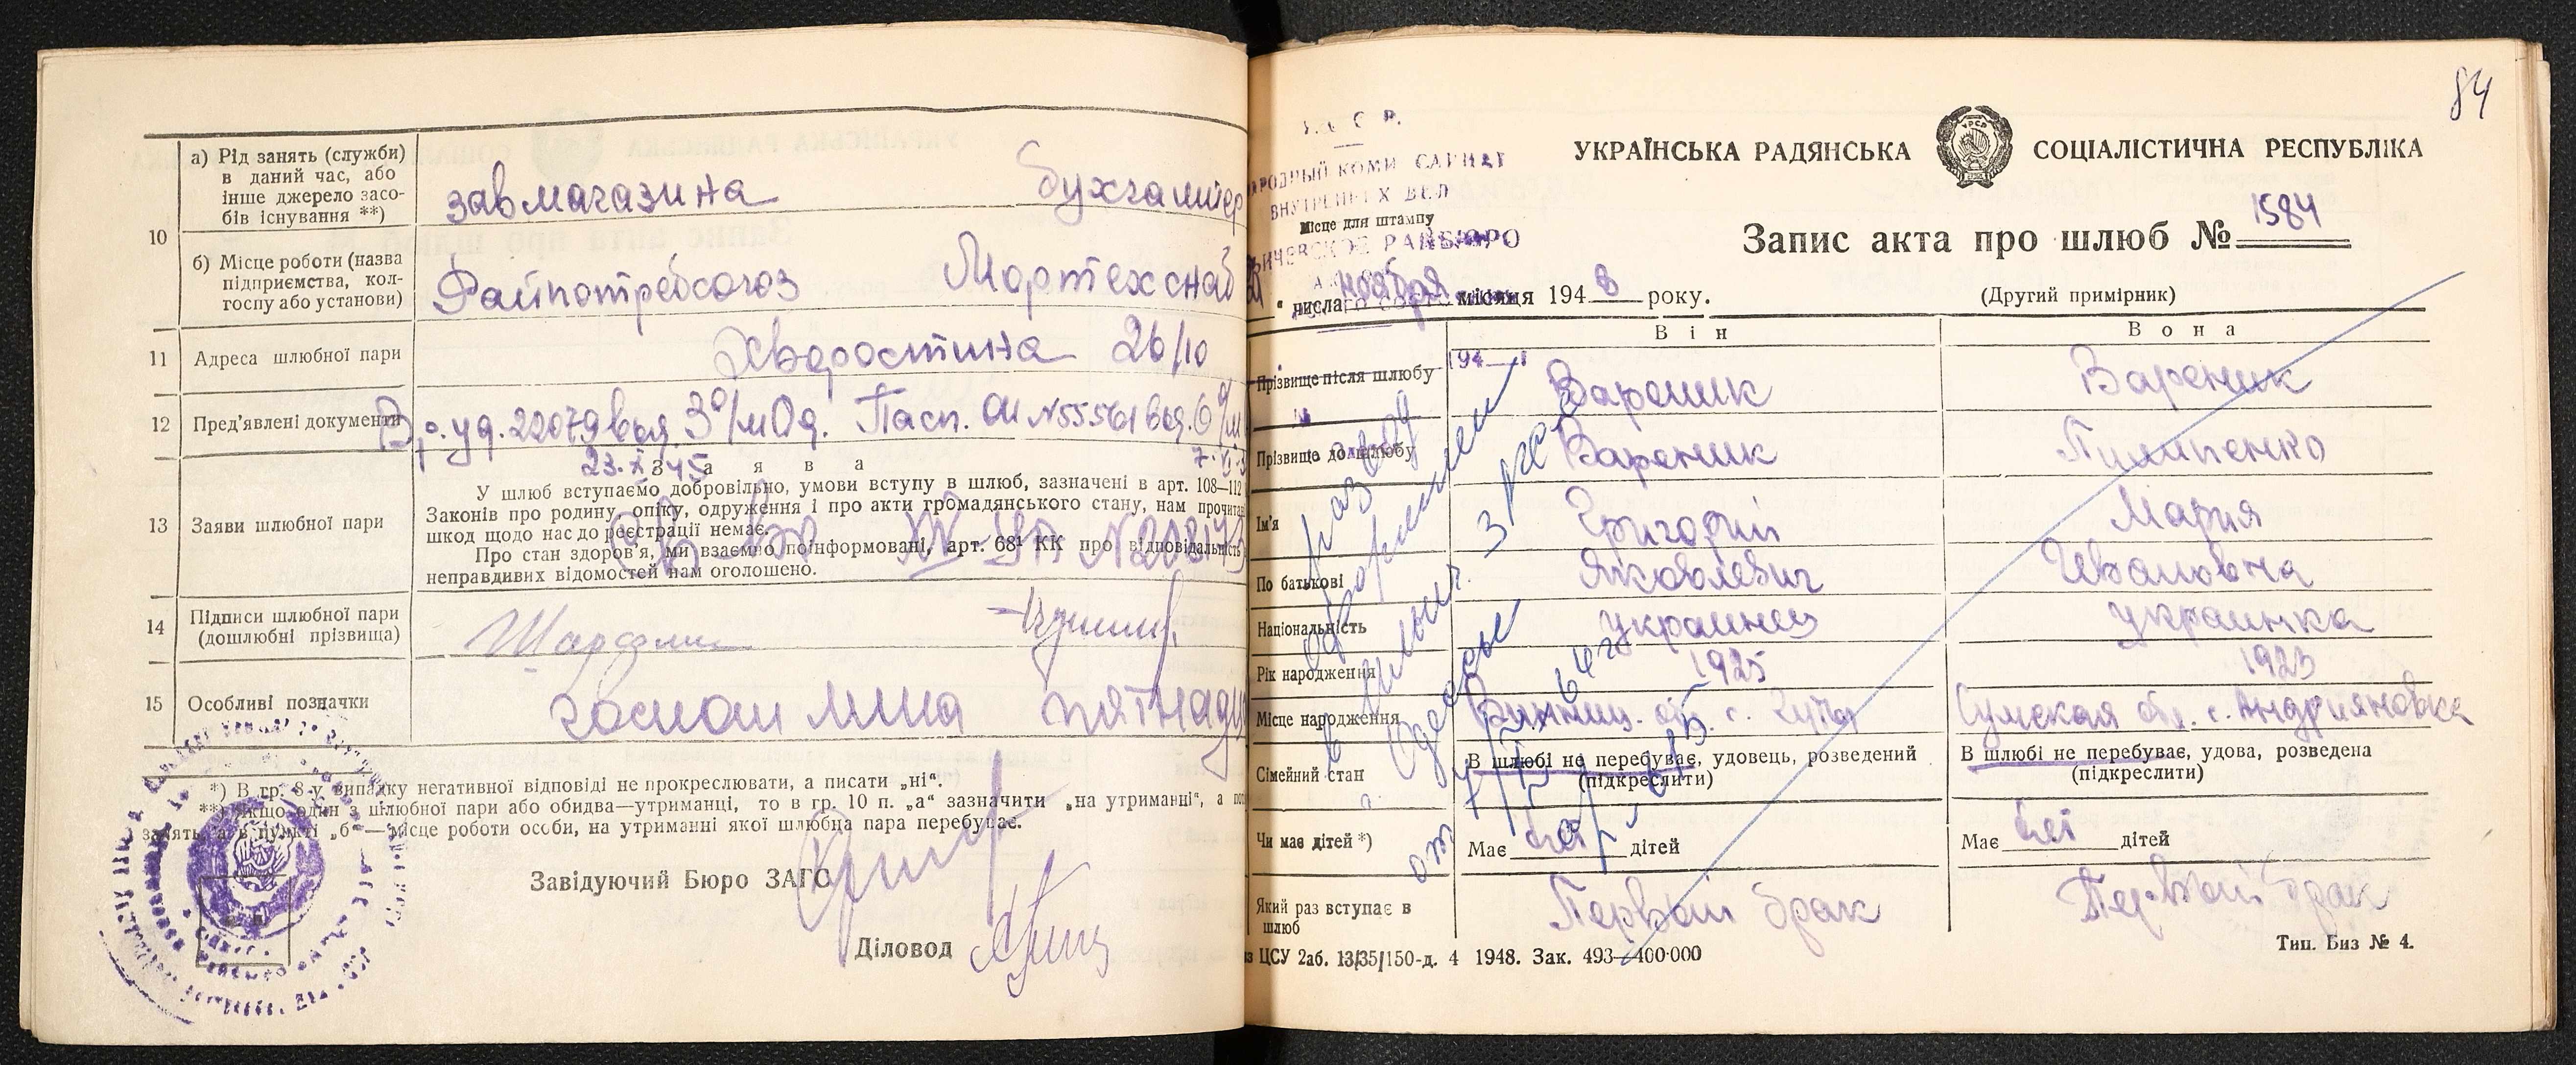 а) Рід занять (служби)
в даний час, або
інше джерело засо-
бів існування **)
завмагазина бухгалтер
10
б) Місце роботи (назва
підприємства, кол-
госпу або установи)
Райпотребсоюз Мортехснаб
11 Адреса шлюбної пари
Хворостина 26/10
12 Пред'явлені документи
Вр. уд. 22079 выд. 3 о/м Од. Пасп. N 55561 выд. 6 о/м
23. 45
З а я в а
13 Заяви шлюбної пари
У шлюб вступаємо добровільно, умови вступу в шлюб, зазначені в арт. 108—112
Законів про родину, опіку, одруження і про акти громадянського стану, нам прочитані
шкод щодо нас до реєстрації немає.
Про стан здоров'я, ми взаємно поінформовані, арт. 68¹ КК про відповідальність
неправдивих відомостей нам оголошено.
14 Підписи шлюбної пари
(дошлюбні прізвища)
15 Особливі позначки
госпошлина пятнадц
*) В гр. 8 у випадку негативної відповіді не прокреслювати, а писати „ні“.
**) Якщо один з шлюбної пари або обидва—утриманці, то в гр. 10 п. „а“ зазначити „на утриманці“, а
занять, а в пункті „б“ — місце роботи особи, на утриманні якої шлюбна пара перебуває.
Завідуючий Бюро ЗАГС
Діловод
84
УКРАЇНСЬКА РАДЯНСЬКА СОЦІАЛІСТИЧНА РЕСПУБЛІКА
НАРОДНЫЙ КОМИССАРИАТ
ВНУТРЕННИХ ДЕЛ
Місце для штампу
РАЙБЮРО
Запис акта про шлюб № 1584
(Другий примірник)
“ числа ноября місяця 1948 року.
Він Вона
Прізвище після шлюбу Вареник Вареник
Прізвище до шлюбу Вареник Пилипенко
Ім'я Григорий Мария
По батькові Яковлевич Ивановна
Національність украинец украинка
Рік народження 1925 1923
Місце народження Винниц. обл. с. Сумская обл. с. Андрияновка
Сімейний стан В шлюбі не перебуває, удовець, розведений В шлюбі не перебуває, удова, розведена
(підкреслити) (підкреслити)
Чи має дітей *) Має нет дітей Має нет дітей
Який раз вступає в
шлюб Первый брак Первый брак
развод
оформлен
ЦСУ 2аб. 13/35/150-д. 4 1948. Зак. 493—400·000
Тип. Биз № 4.